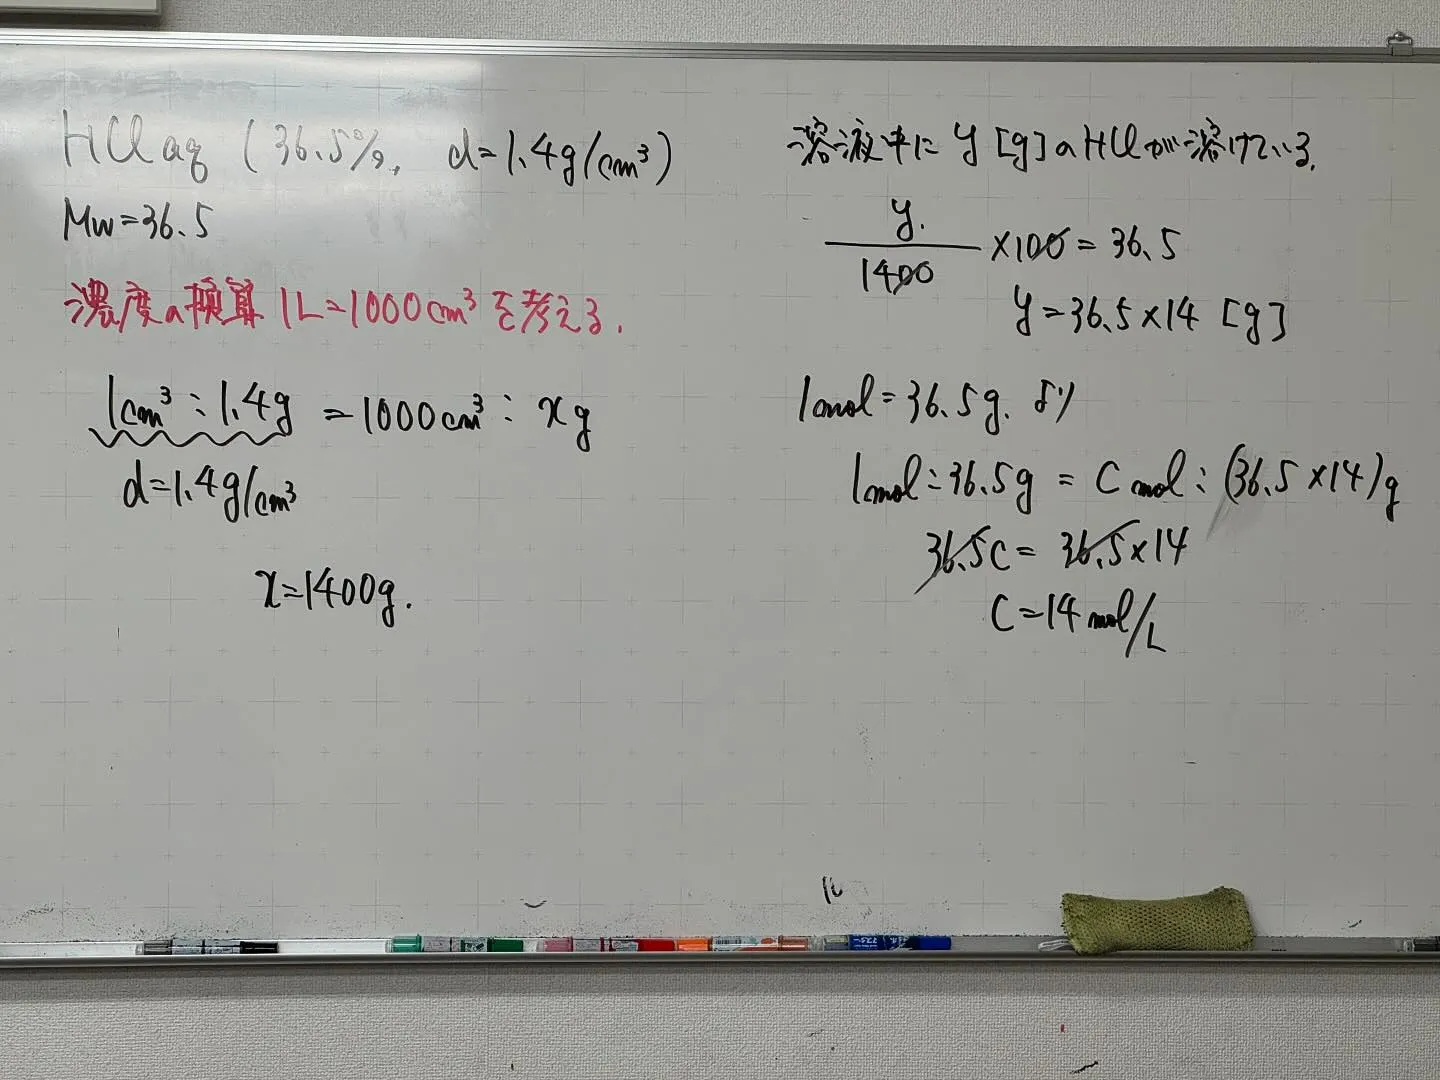 HCl aq (36.5%, d=1.4g/cm³)
Mw=36.5
濃度の換算 1L=1000cm³を考える.
1cm³:1.4g=1000cm³:xg
d=1.4g/cm³
x=1400g.
溶液中に y[g]のHClが溶けている.
y.
1400
×100=36.5
y=36.5×14 [g]
1mol=36.5g. より
1mol:36.5g=Cmol:(36.5×14)g
36.5C=36.5×14
C=14mol/L